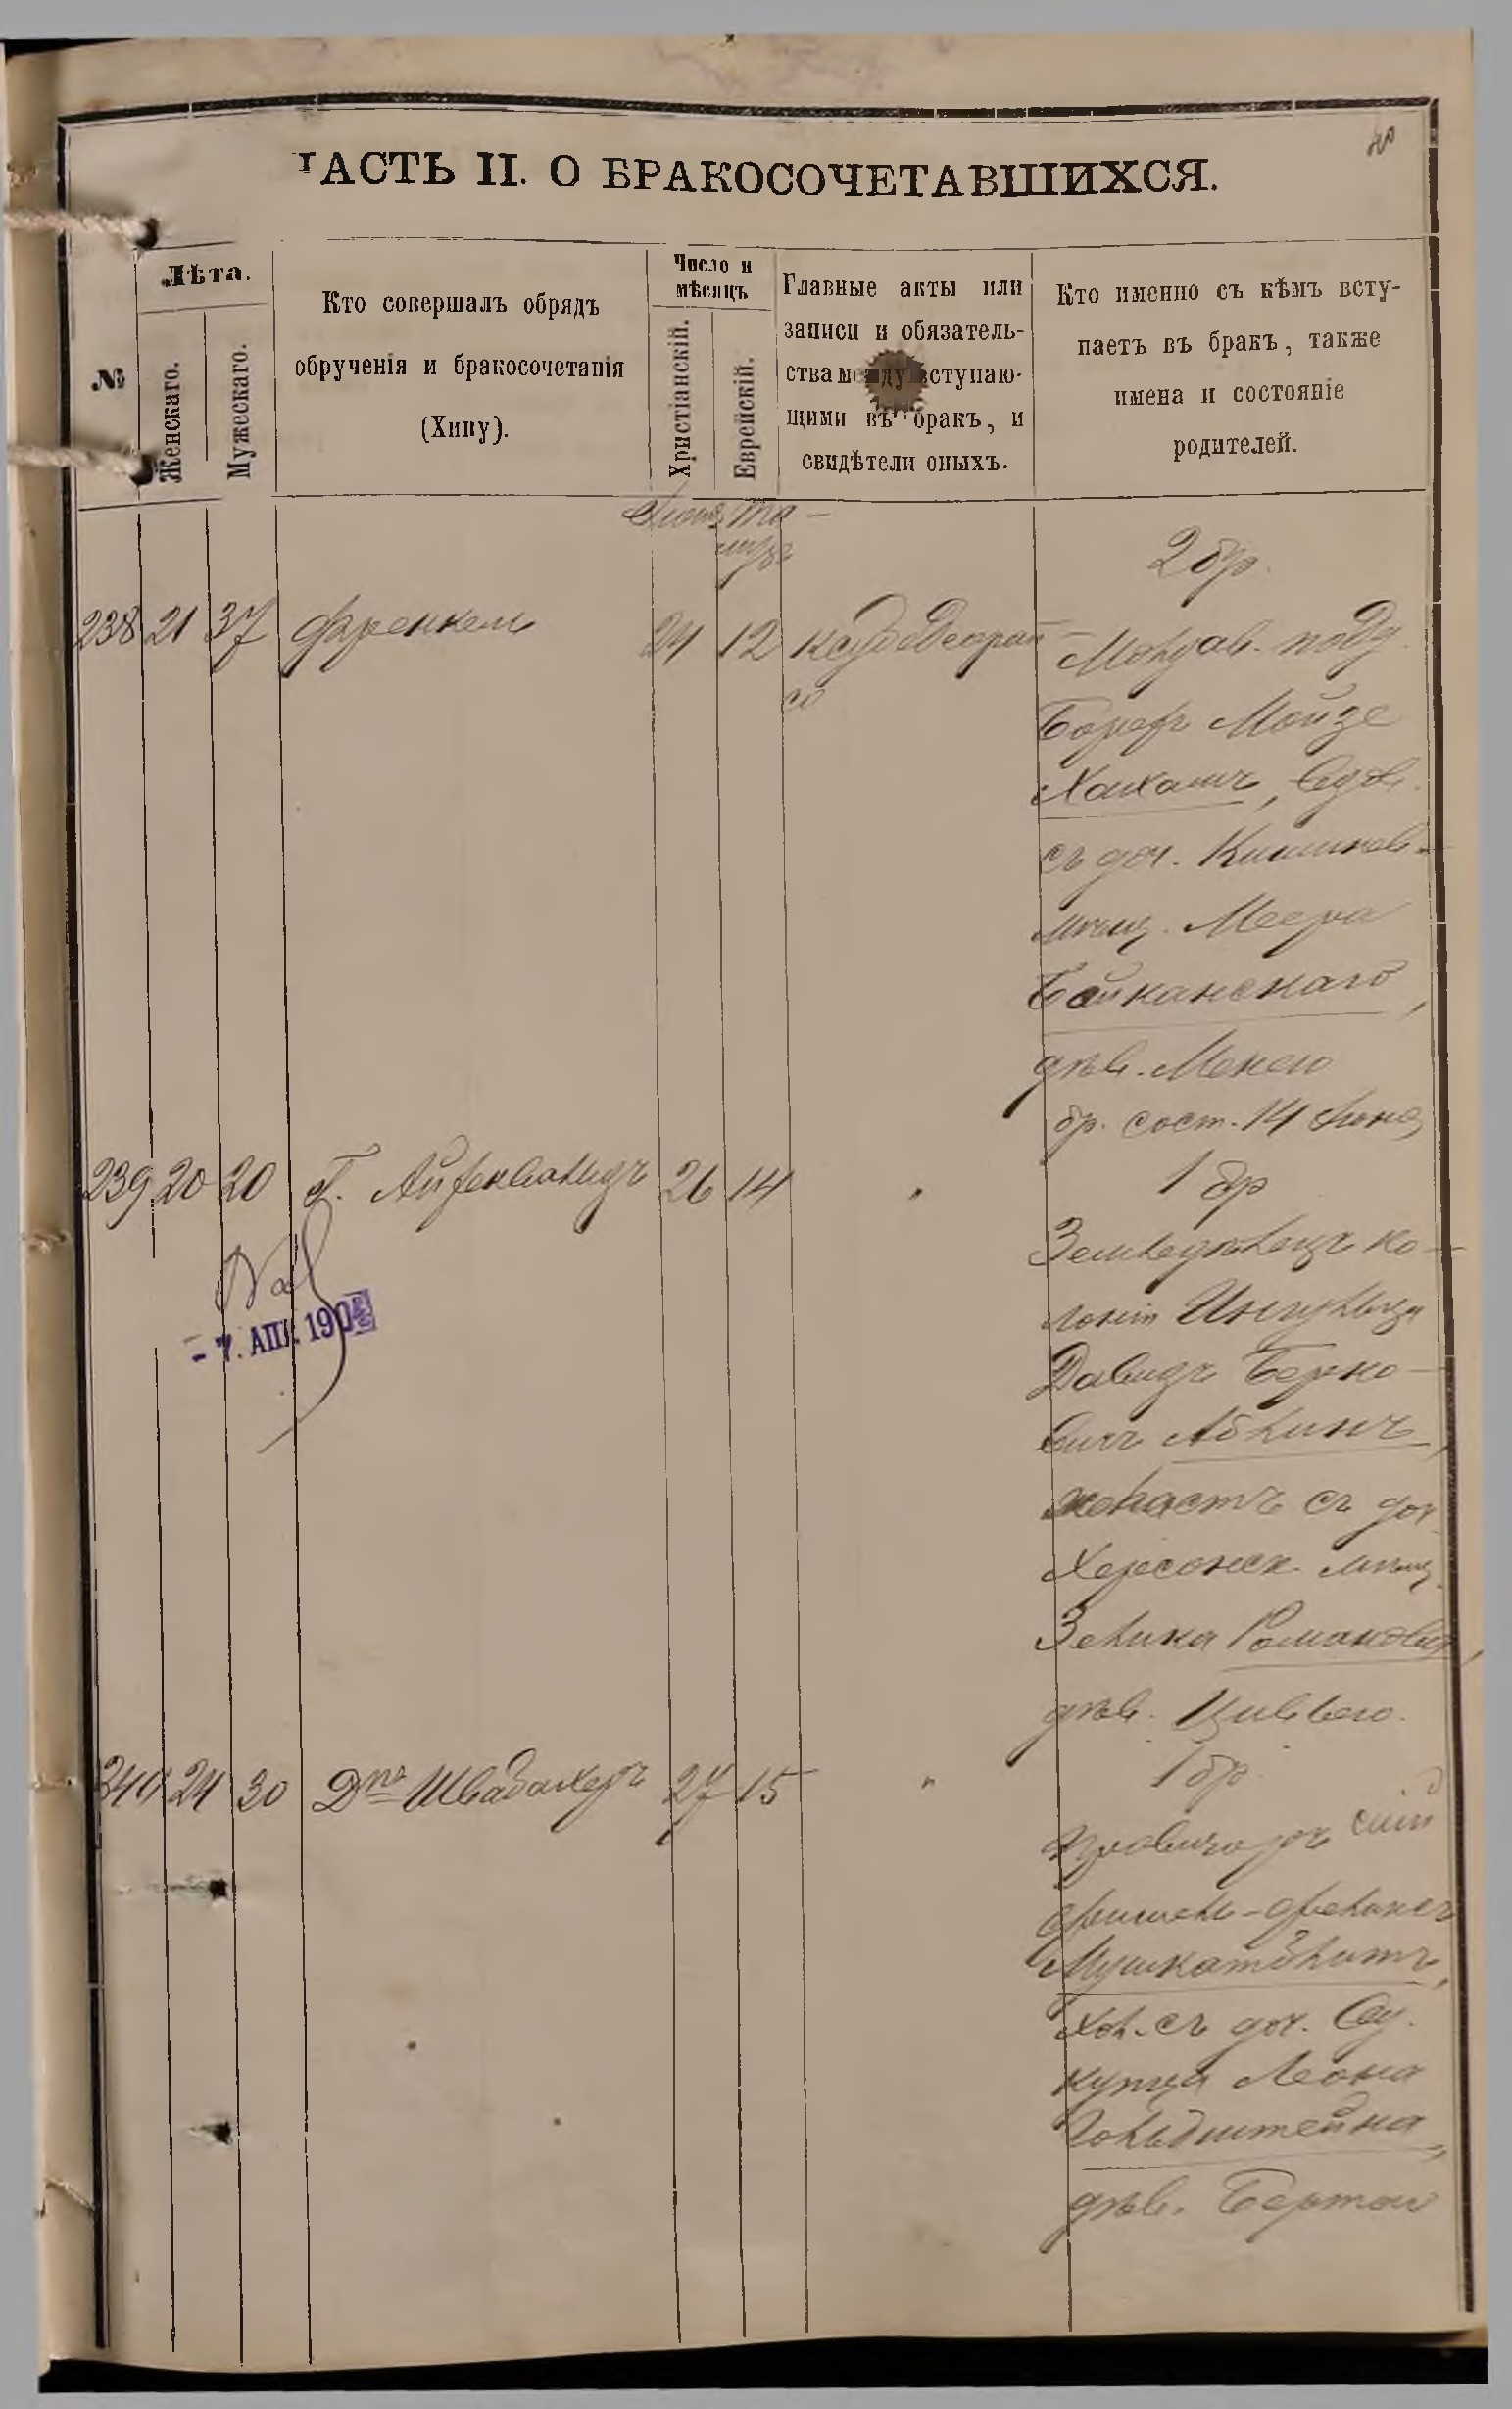 ЧАСТЬ II. О БРАКОСОЧЕТАВШИХСЯ.
№
Лѣта.
Женскаго.
Мужескаго.
Кто совершалъ обрядъ
обрученія и бракосочетанія
(Хипу).
Число и
мѣсяцъ
Христіанскій.
Еврейскій.
Главные акты или
записи и обязатель-
ства между вступаю-
щими въ бракъ, и
свидѣтели оныхъ.
Кто именно съ кѣмъ всту-
паетъ въ бракъ, также
имена и состояніе
родителей.
Іюнь Та-
музъ
2 бр.
238 21 37 Френкель 24 12
Молдав. подд.
Мойзе
вдов.
съ доч. Кишинев.
мѣщ. Меера
Байканскаго,
дѣв.
бр. сост. 14 Іюня
239 20 20 Г. Айзенвальдъ 26 14 "
1 бр
Земледѣлецъ ко-
лоніи Ингульца
Давидъ Берко-
вичъ Абкинъ,
холастъ съ доч.
Херсонск. мѣщ.
Зелика Романовича,
дѣв. Цивьею.
- 7. АПР. 190
240 24 30 Дръ Швабахеръ 27 15 "
1 бр.
Провизоръ
Мушкатблитъ,
хол. съ доч. Од.
купца Леона
Гольдштейна,
дѣв. Бертою